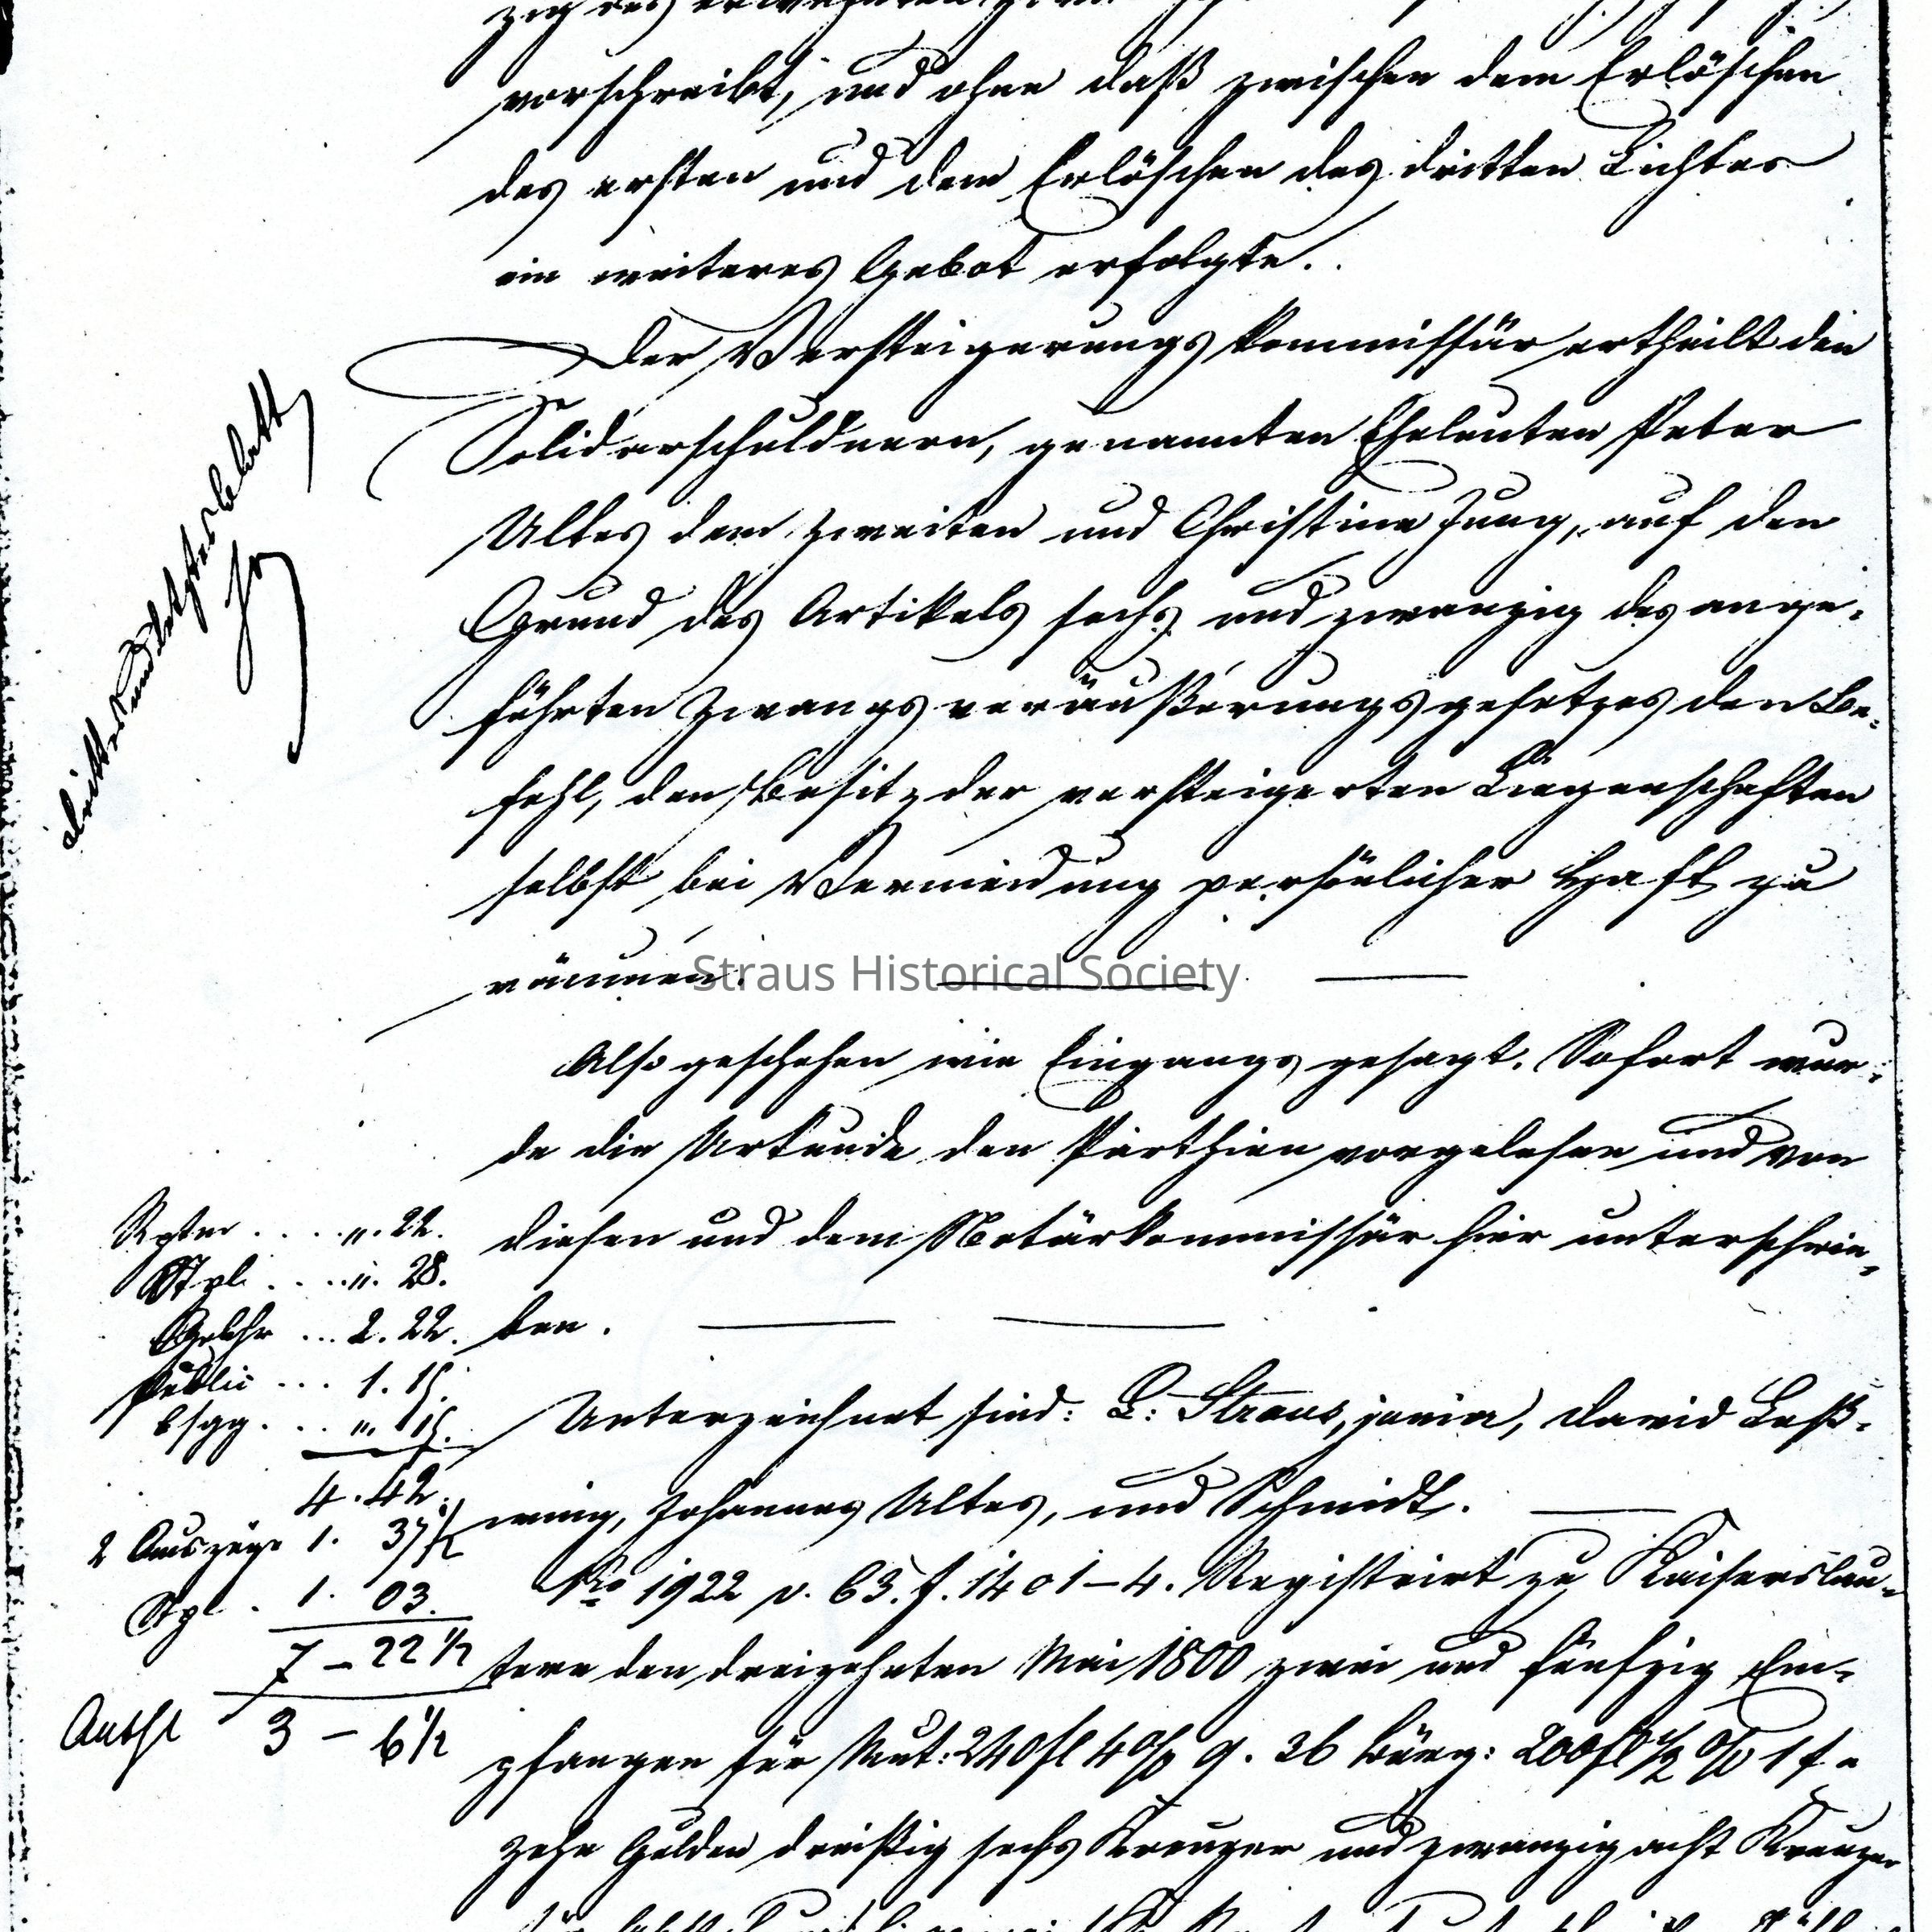 vorschreibt, und ohne daß zwischen dem Erlöschen
des ersten und dem Erlöschen des dritten Lichtes
ein weiteres Gebot erfolgte.
Der Versteigerungskommissär ertheilt den
Solidarschuldnern, genannten Eheleuten Peter
Ultes dem zweiten und Christine Jung, auf den
Grund des Artikels sechs und zwanzig des ange-
führten Zwangsveräußerungsgesetzes den Be-
fehl, den Besitz der versteigerten Liegenschaften
selbst bei Vermeidung persönlicher Haft zu
räumen.
Straus Historical Society
Also geschehen wie Eingangs gesagt. Sofort wur-
de die Urkunde den Parthien vorgelesen und von
diesen und dem Notärkommissär hier unterschrie-
ben.
Unterzeichnet sind: L: Straus, junior, David Leß-
wing, Johannes Ultes, und Schmidt.
Nro 1922 v. 63. f. 140 1-4. Registrirt zu Kaiserslau-
tern den dreizehnten Mai 1800 zwei und fünfzig Em-
pfangen für Mut: 240 fl 4 % 9. 36 Bürg: 200 fl ½ % 1 f -
zehn Gulden dreißig sechs Kreuzer und zwanzig acht Kreuzer
drittes und letztes Blatt
Rgtr .... ". 22.
Stpl .... ". 28.
Gebhr ... 2. 22.
Public ... 1. 15.
". 15.
4. 42.
2 Auszüge 1. 37½
Stpl . 1. 03.
7 - 22 ½
3 - 6½